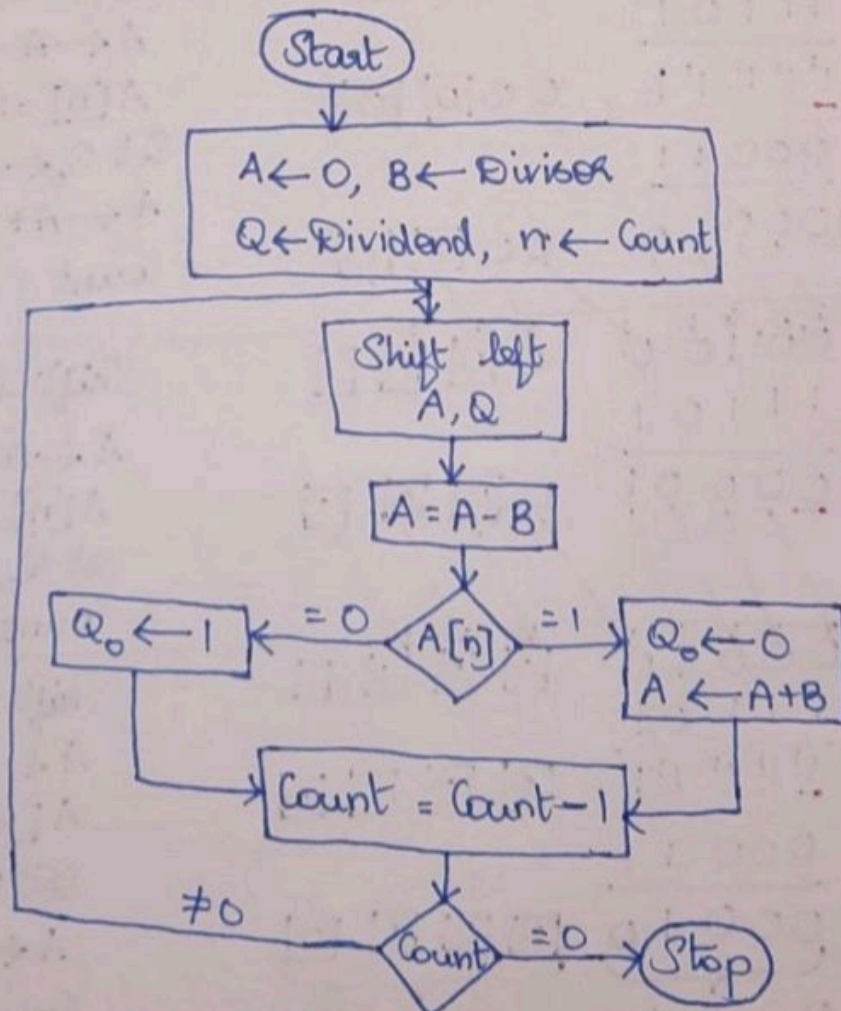 Start
A ← 0, B ← Divisor
Q ← Dividend, n ← Count
Shift left
A, Q
A = A - B
A[n]
= 0
Q₀ ← 1
= 1
Q₀ ← 0
A ← A+B
Count = Count - 1
Count
≠ 0
= 0
Stop